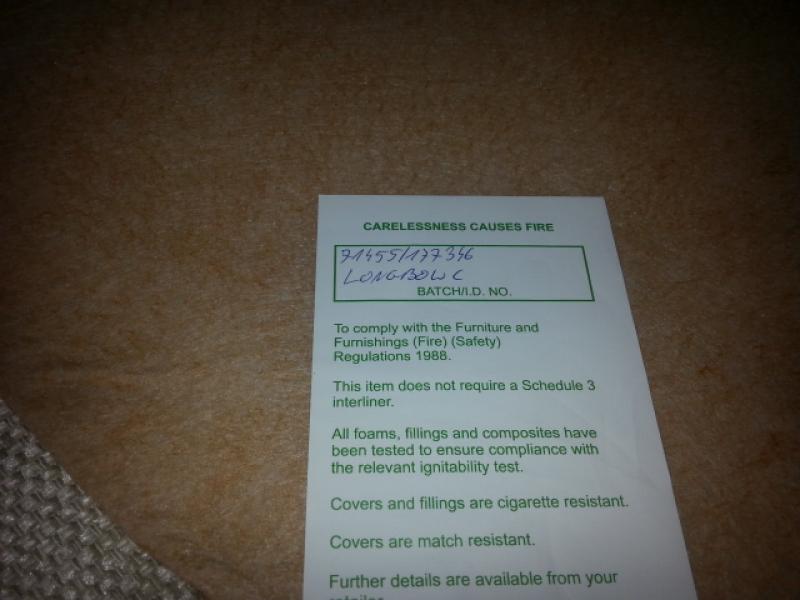 CARELESSNESS CAUSES FIRE
71455/177346
LONGBOW C
BATCH/I.D. NO.
To comply with the Furniture and
Furnishings (Fire) (Safety)
Regulations 1988.
This item does not require a Schedule 3
interliner.
All foams, fillings and composites have
been tested to ensure compliance with
the relevant ignitability test.
Covers and fillings are cigarette resistant.
Covers are match resistant.
Further details are available from your
retailer